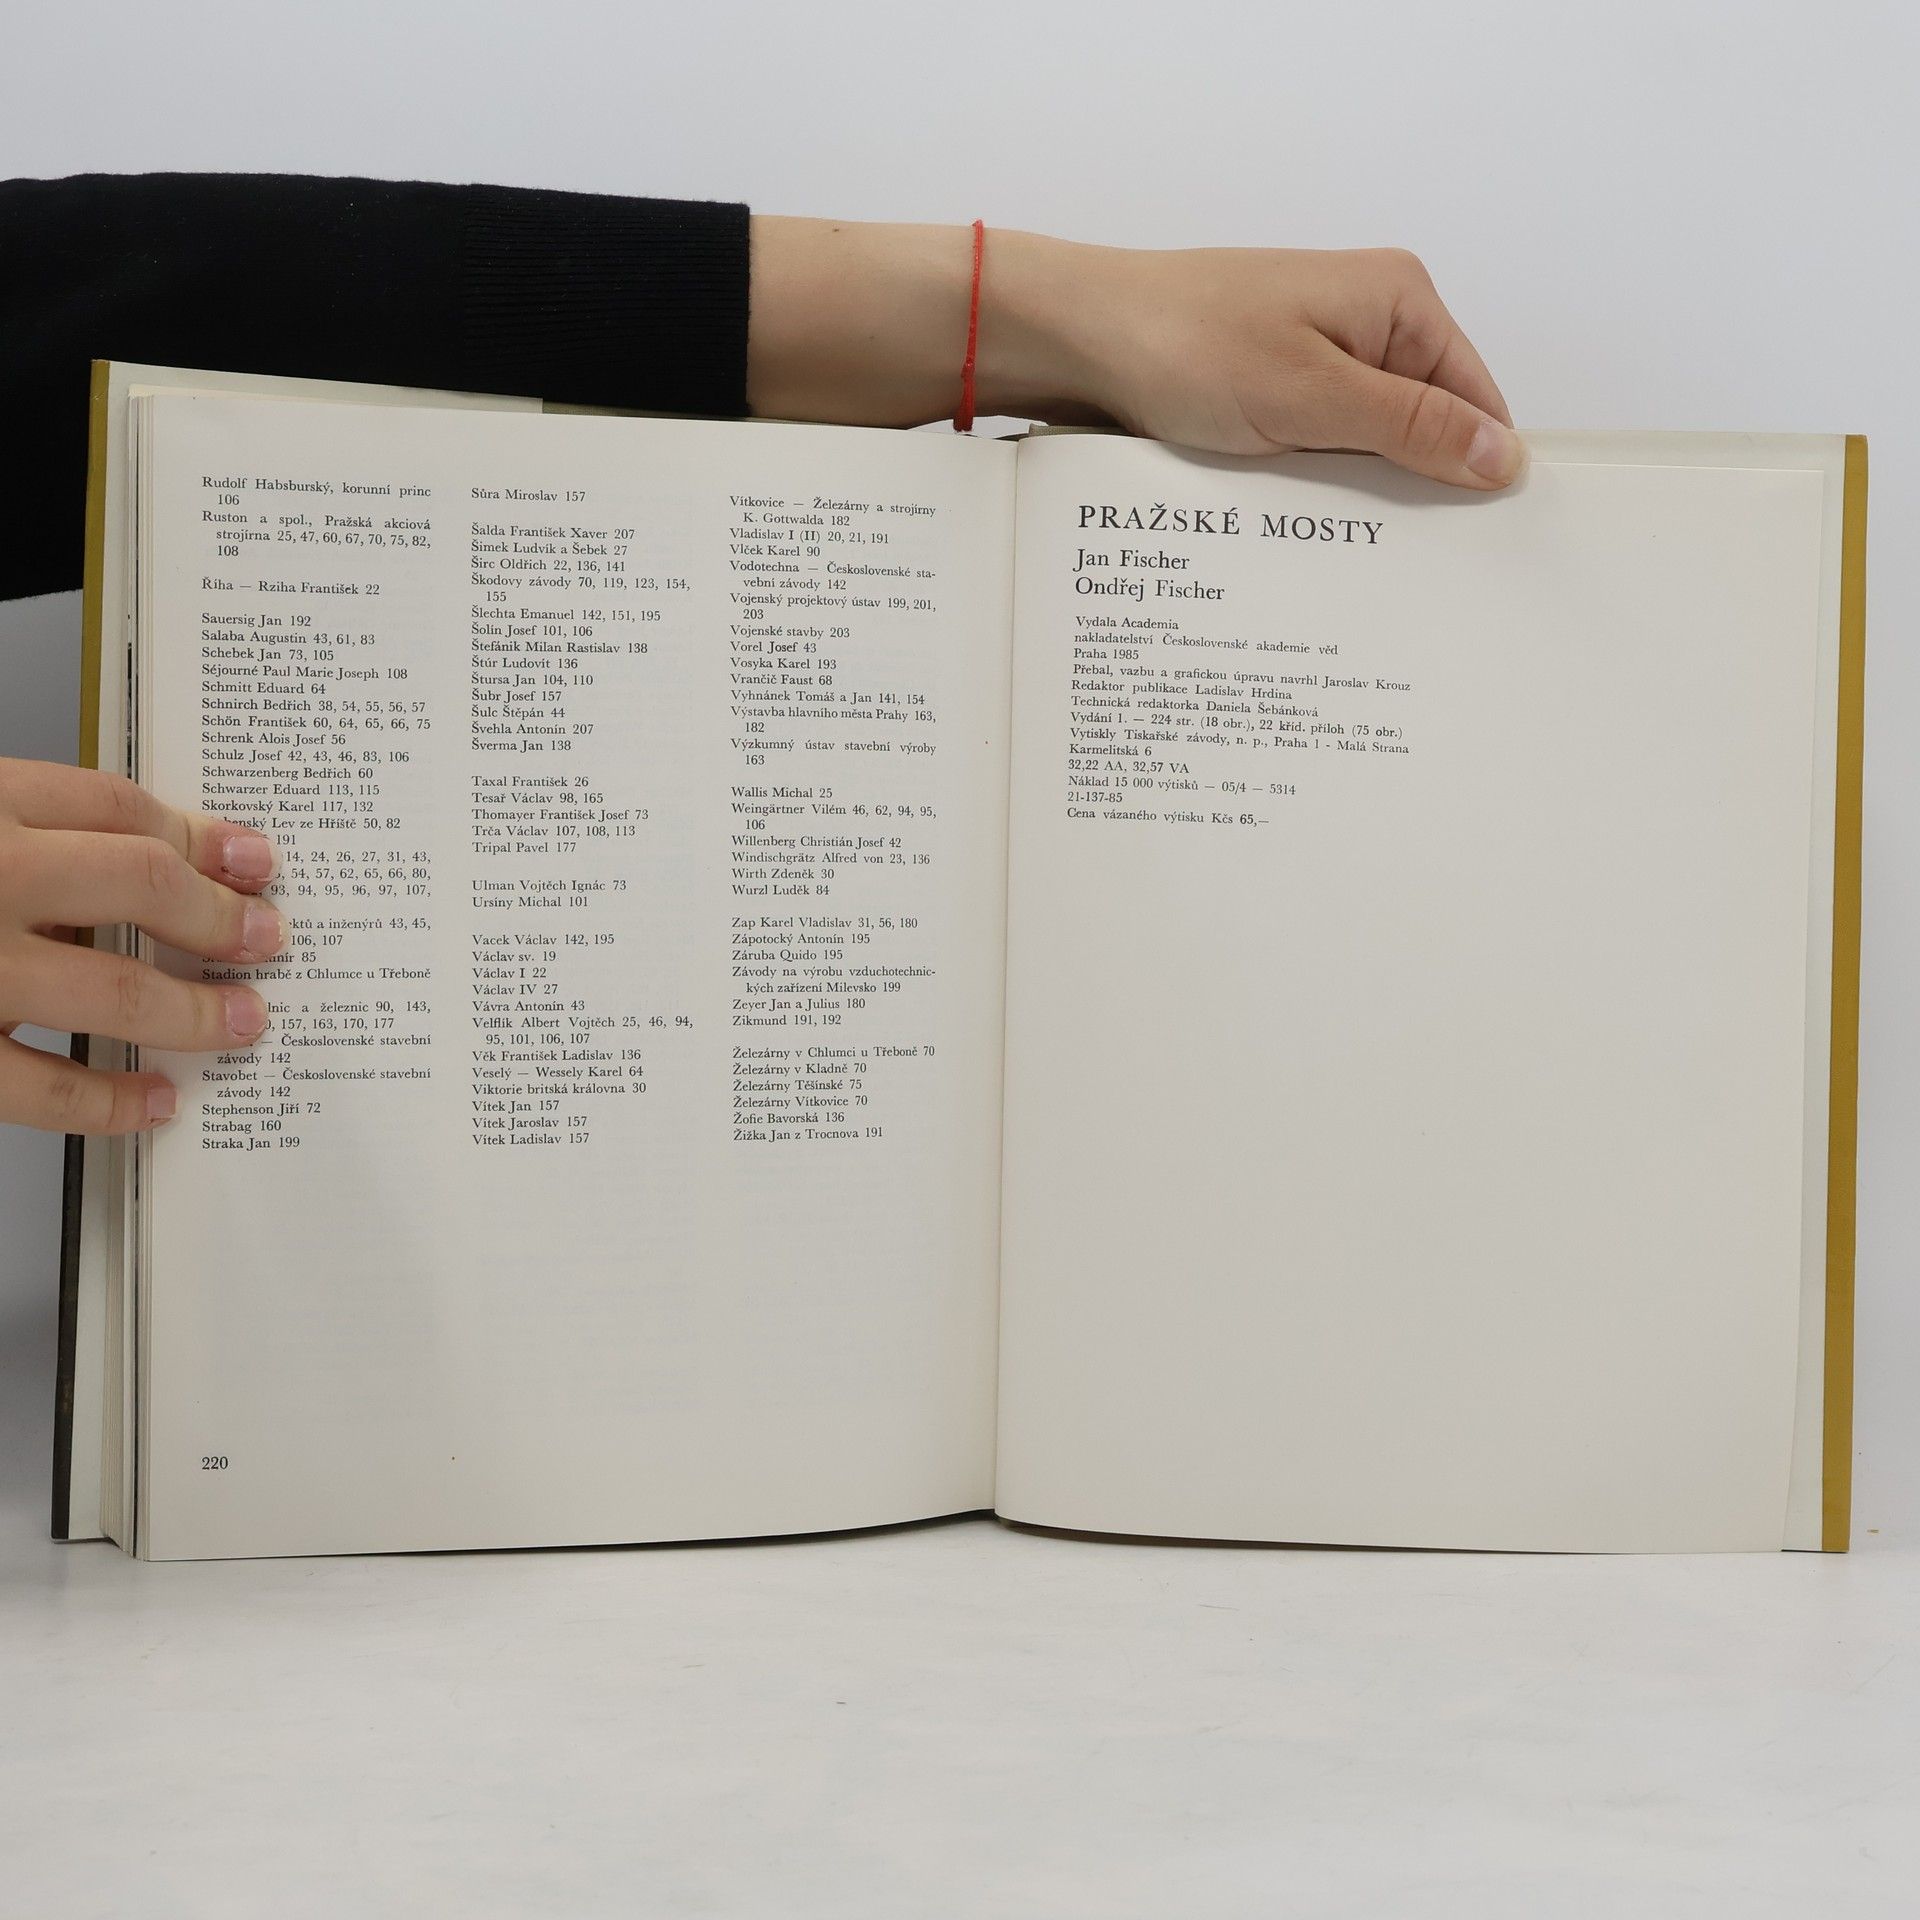 Rudolf Habsburský, korunní princ
106
Ruston a spol., Pražská akciová
strojírna 25, 47, 60, 67, 70, 75, 82,
108
Říha — Rziha František 22
Sauersig Jan 192
Salaba Augustin 43, 61, 83
Schebek Jan 73, 105
Séjourné Paul Marie Joseph 108
Schmitt Eduard 64
Schnirch Bedřich 38, 54, 55, 56, 57
Schön František 60, 64, 65, 66, 75
Schrenk Alois Josef 56
Schulz Josef 42, 43, 46, 83, 106
Schwarzenberg Bedřich 60
Schwarzer Eduard 113, 115
Skorkovský Karel 117, 132
Lev ze Hříště 50, 82
191
14, 24, 26, 27, 31, 43,
54, 57, 62, 65, 66, 80,
93, 94, 95, 96, 97, 107,
a inženýrů 43, 45,
106, 107
85
Stadion hrabě z Chlumce u Třeboně
a železnic 90, 143,
157, 163, 170, 177
— Československé stavební
závody 142
Stavobet — Československé stavební
závody 142
Stephenson Jiří 72
Strabag 160
Straka Jan 199
220
Sůra Miroslav 157
Šalda František Xaver 207
Šimek Ludvík a Šebek 27
Širc Oldřich 22, 136, 141
Škodovy závody 70, 119, 123, 154,
155
Šlechta Emanuel 142, 151, 195
Šolín Josef 101, 106
Štefánik Milan Rastislav 138
Štúr Ludovít 136
Štursa Jan 104, 110
Šubr Josef 157
Šulc Štěpán 44
Švehla Antonín 207
Šverma Jan 138
Taxal František 26
Tesař Václav 98, 165
Thomayer František Josef 73
Trča Václav 107, 108, 113
Tripal Pavel 177
Ulman Vojtěch Ignác 73
Ursíny Michal 101
Vacek Václav 142, 195
Václav sv. 19
Václav I 22
Václav IV 27
Vávra Antonín 43
Velflík Albert Vojtěch 25, 46, 94,
95, 101, 106, 107
Věk František Ladislav 136
Veselý — Wessely Karel 64
Viktorie britská královna 30
Vítek Jan 157
Vítek Jaroslav 157
Vítek Ladislav 157
Vítkovice — Železárny a strojírny
K. Gottwalda 182
Vladislav I (II) 20, 21, 191
Vlček Karel 90
Vodotechna — Československé sta-
vební závody 142
Vojenský projektový ústav 199, 201,
203
Vojenské stavby 203
Vorel Josef 43
Vosyka Karel 193
Vrančič Faust 68
Vyhnánek Tomáš a Jan 141, 154
Výstavba hlavního města Prahy 163,
182
Výzkumný ústav stavební výroby
163
Wallis Michal 25
Weingärtner Vilém 46, 62, 94, 95,
106
Willenberg Christián Josef 42
Windischgrätz Alfred von 23, 136
Wirth Zdeněk 30
Wurzl Luděk 84
Zap Karel Vladislav 31, 56, 180
Zápotocký Antonín 195
Záruba Quido 195
Závody na výrobu vzduchotechnic-
kých zařízení Milevsko 199
Zeyer Jan a Julius 180
Zikmund 191, 192
Železárny v Chlumci u Třeboně 70
Železárny v Kladně 70
Železárny Těšínské 75
Železárny Vítkovice 70
Žofie Bavorská 136
Žižka Jan z Trocnova 191
PRAŽSKÉ MOSTY
Jan Fischer
Ondřej Fischer
Vydala Academia
nakladatelství Československé akademie věd
Praha 1985
Přebal, vazbu a grafickou úpravu navrhl Jaroslav Krouz
Redaktor publikace Ladislav Hrdina
Technická redaktorka Daniela Šebánková
Vydání 1. — 224 str. (18 obr.), 22 kříd. příloh (75 obr.)
Vytiskly Tiskařské závody, n. p., Praha 1 - Malá Strana
Karmelitská 6
32,22 AA, 32,57 VA
Náklad 15 000 výtisků — 05/4 — 5314
21-137-85
Cena vázaného výtisku Kčs 65,—